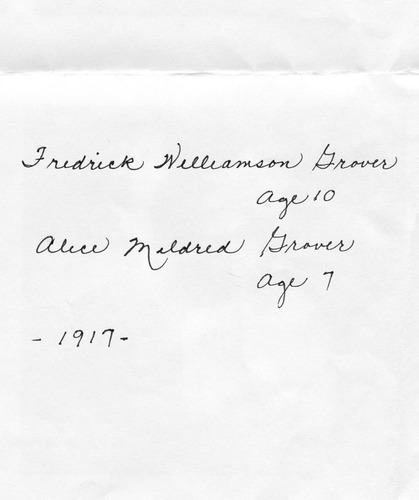 Fredrick Williamson Grover
Age 10
Alice Mildred Grover
Age 7
- 1917 -